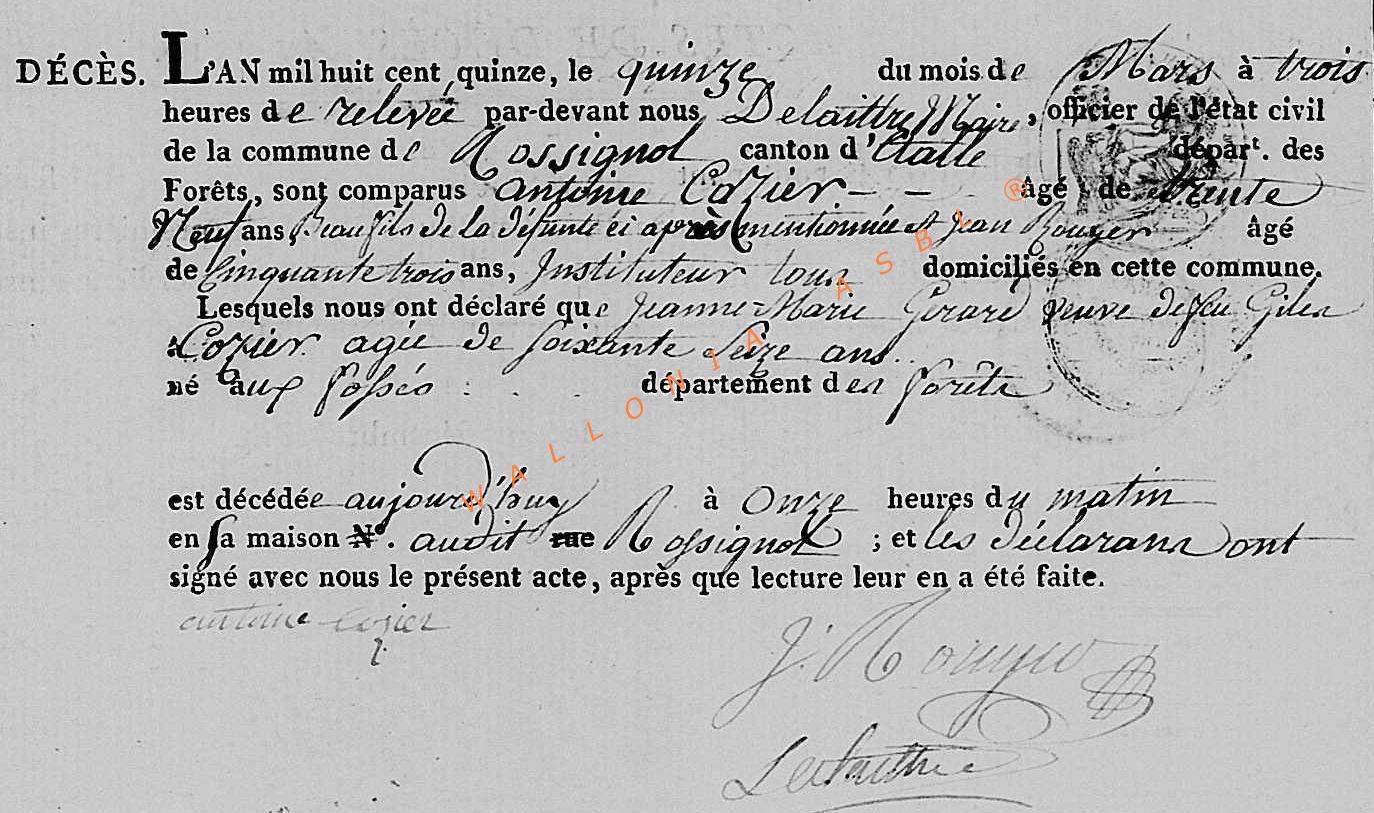 DÉCÈS. L'AN mil huit cent quinze, le quinze du mois de Mars à trois
heures de relevée par-devant nous Delaittre Maire, officier de l'état civil
de la commune de Rossignol canton d'Etalle départ. des
Forêts, sont comparus antoine Cozier - - âgé de trente
Neuf ans, Beau fils de la défunte ci après mentionnée et Jean Rouyer âgé
de Cinquante trois ans, Instituteur tous domiciliés en cette commune.
Lesquels nous ont déclaré que Jeanne-Marie Gerard veuve de feu Giles
Cozier agée de soixante Seize ans
né aux fossés département des forêts
est décédée aujourd'huy à Onze heures du matin
en sa maison N°. audit rue Rossignol ; et les déclarans ont
signé avec nous le présent acte, après que lecture leur en a été faite.
antoine cozier
J. Rouyer
Delaittre
WALLONIA ASBL ®